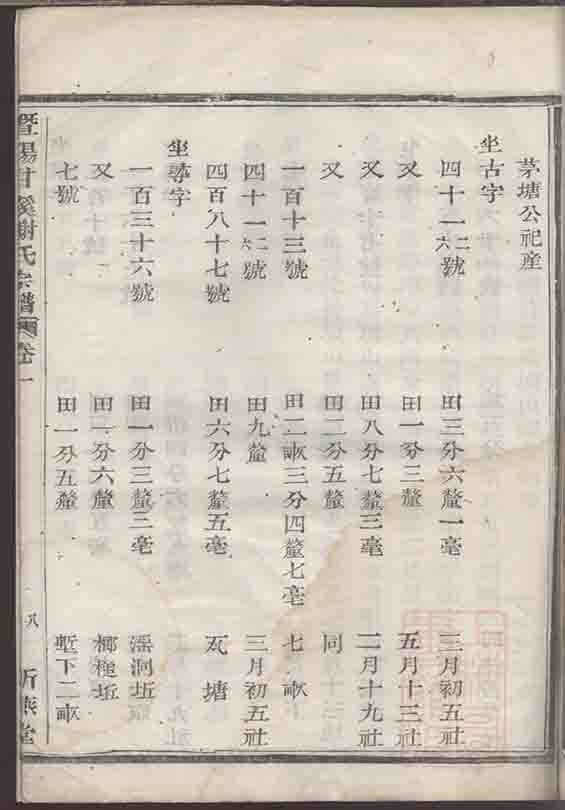 茅塘公祀産
坐古字
四十一二六號 田三分六釐一毫 三月初五社
又 田一分三釐 五月十三社
又 田八分七釐三毫 二月十九社
又 田二分五釐 同
一百十三號 田二畝三分四釐七毫 七畝
四十一二六號 田九釐 三月初五社
四百八十七號 田六分七釐五毫 瓦塘
坐尋字
一百三十六號 田一分三釐三毫 滛洞坵
又 田一分六釐 梛槌坵
七號 田一分五釐 塹下二畝
暨陽甘溪謝氏宗譜 卷一
八